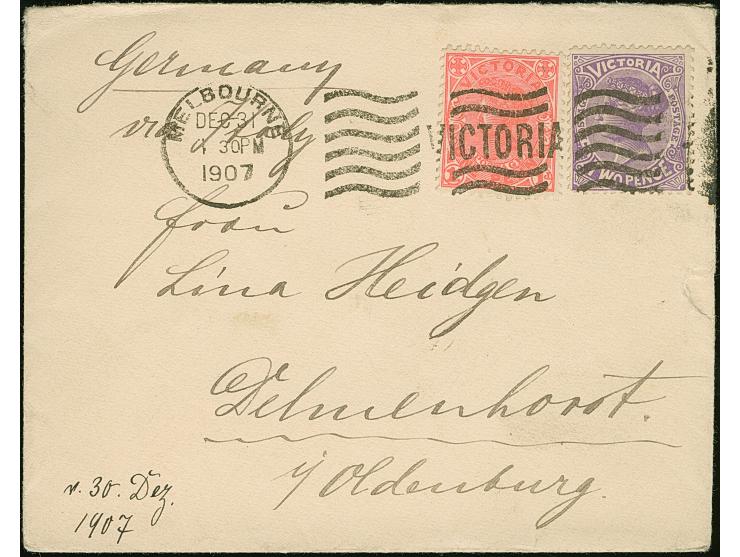 Germany
via Italy
MELBOURNE
DEC 31
1 30PM
1907
VICTORIA
VICTORIA
VICTORIA
POSTAGE
TWO PENCE
Frau
Lina Heidgen
Delmenhorst.
i/Oldenburg.
v. 30. Dez.
1907